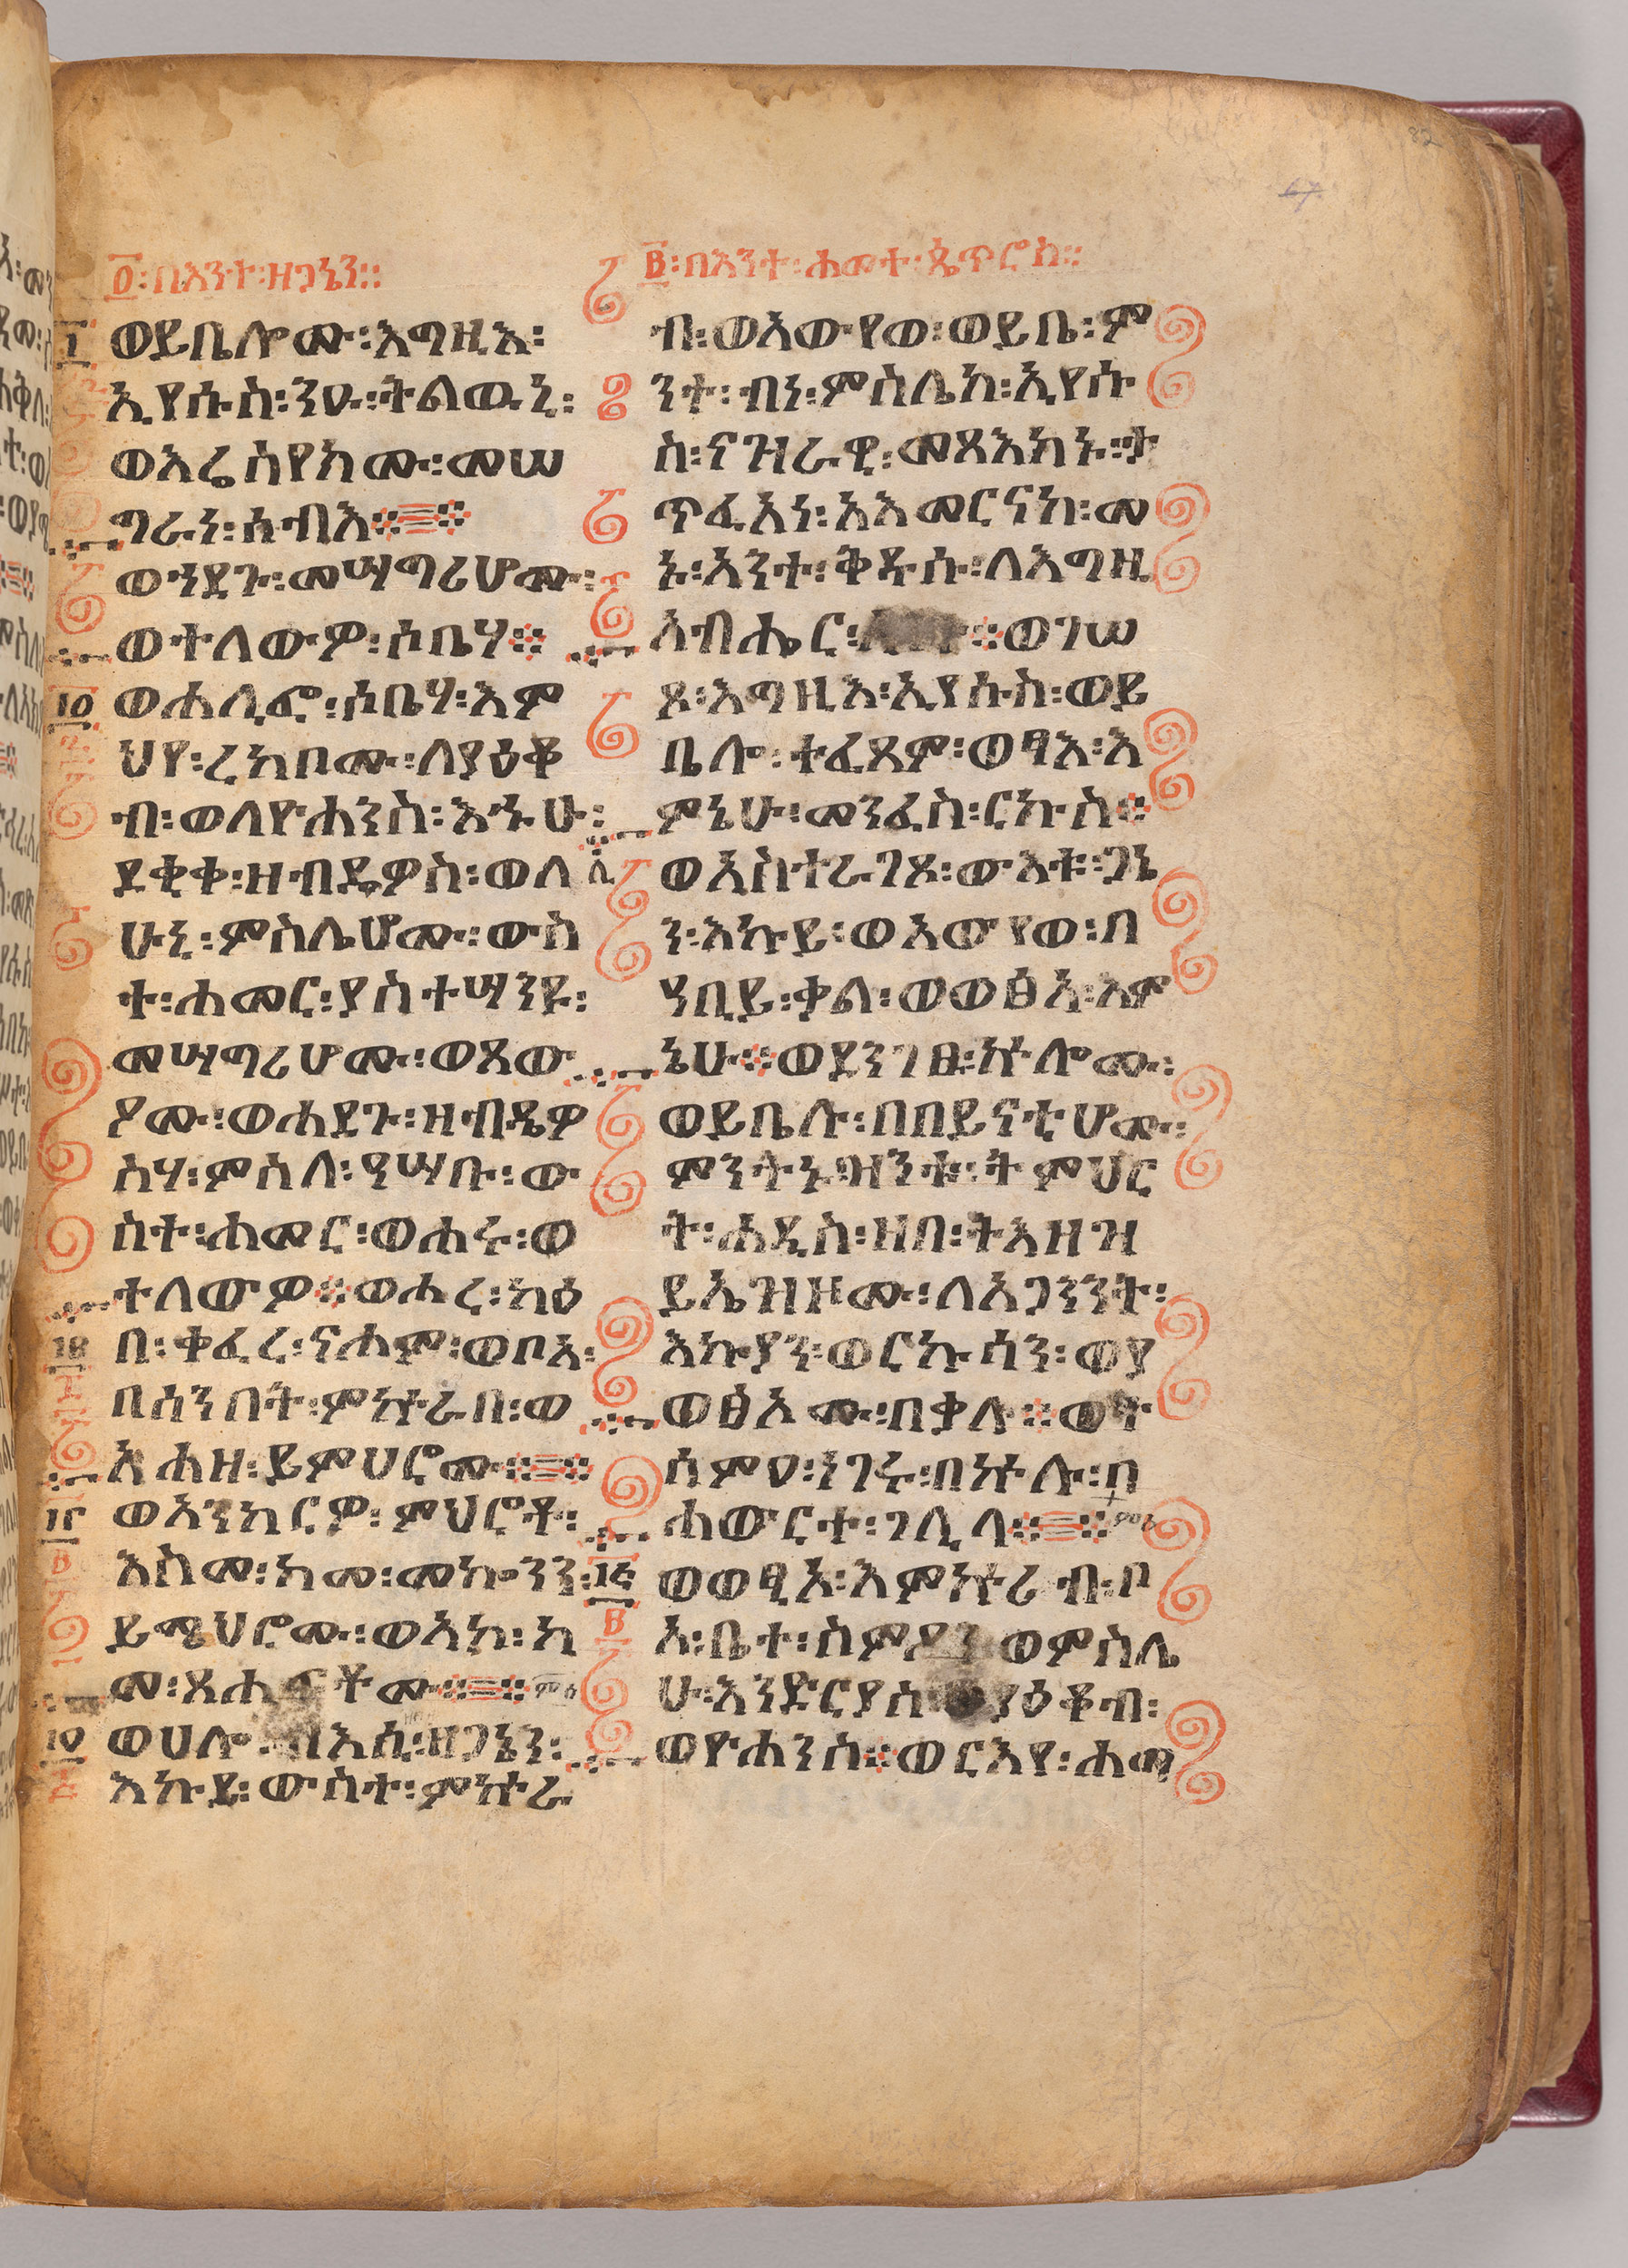 ፩፡በእንተ፡ዘጋኔን።
ወይቤሎሙ፡እግዚእ፡
ኢየሱስ፡ንዑ፡ትልዉኒ፡
ወእሬስየክሙ፡መሠ
ግራነ፡ሰብእ፨
ወኀደጉ፡መሣግሪሆሙ፡
ወተለውዎ፡ሶቤሃ፨
፲ወሐሊፎ፡ሶቤሃ፡እም
ህየ፡ረከቦሙ፡ለያዕቆ
ብ፡ወለዮሐንስ፡እኁሁ፡
ደቂቀ፡ዘብዴዎስ፡ወለሊ
ሁኒ፡ምስሌሆሙ፡ውስ
ተ፡ሐመር፡ያስተሣንዩ፡
መሣግሪሆሙ፡ወጸው
ዖሙ፡ወሐደጉ፡ዘብዴዎ
ስሃ፡ምስለ፡ዓሣቡ፡ው
ስተ፡ሐመር፡ወሐሩ፡ወ
ተለውዎ፨ወሐረ፡ካዕ
በ፡ቀፈረ፡ናሖም፡ወቦአ፡
በሰንበት፡ምኵራበ፡ወ
አሐዘ፡ይምህሮሙ፨
ወአንከርዎ፡ምህሮቶ፡
እስመ፡ከመ፡መኰንን፡
ይሜህሮሙ፡ወአኮ፡ከ
መ፡ጸሐፍቶሙ፨
ወሀሎ፡ብእሲ፡ዘጋኔን፡
እኩይ፡ውስተ፡ምኵራ
፪፡በእንተ፡ሐመተ፡ጴጥሮስ።
ብ፡ወአውየወ፡ወይቤ፡ም
ንተ፡ብነ፡ምስሌከ፡ኢየሱ
ስ፡ናዝራዊ፡መጻእከኑ፡ታ
ጥፈአነ፡አአመርናከ፡መ
ኑ፡አንተ፡ቅዱሱ፡ለእግዚ
አብሔር፡፨ወገሠ
ጾ፡እግዚእ፡ኢየሱስ፡ወይ
ቤሎ፡ተፈጸም፡ወፃእ፡እ
ምኔሁ፡መንፈስ፡ርኩስ፨
ወአስተራገጾ፡ውእቱ፡ጋኔ
ን፡እኩይ፡ወአውየወ፡በ
ዓቢይ፡ቃል፡ወወፅአ፡እም
ኔሁ፨ወደንገፁ፡ኵሎሙ፡
ወይቤሉ፡በበይናቲሆሙ፡
ምንትኑ፡ዝንቱ፡ትምህር
ት፡ሐዲስ፡ዘበ፡ትእዘዝ
ይኤዝዞሙ፡ለአጋንንት፡
እኩያን፡ወርኩሳን፡ወያ
ወፅእሙ፡በቃሉ፨ወተ
ሰምዐ፡ነገሩ፡በኵሉ፡በ
ሐውርተ፡ገሊላ፨
ወወፂኦ፡እምኵሪብ፡ቦ
አ፡ቤተ፡ስምዖን፡ወምስሌ
ሁ፡እንድርያስ፡ወያዕቆብ፡
ወዮሐንስ፨ወርእየ፡ሐማ